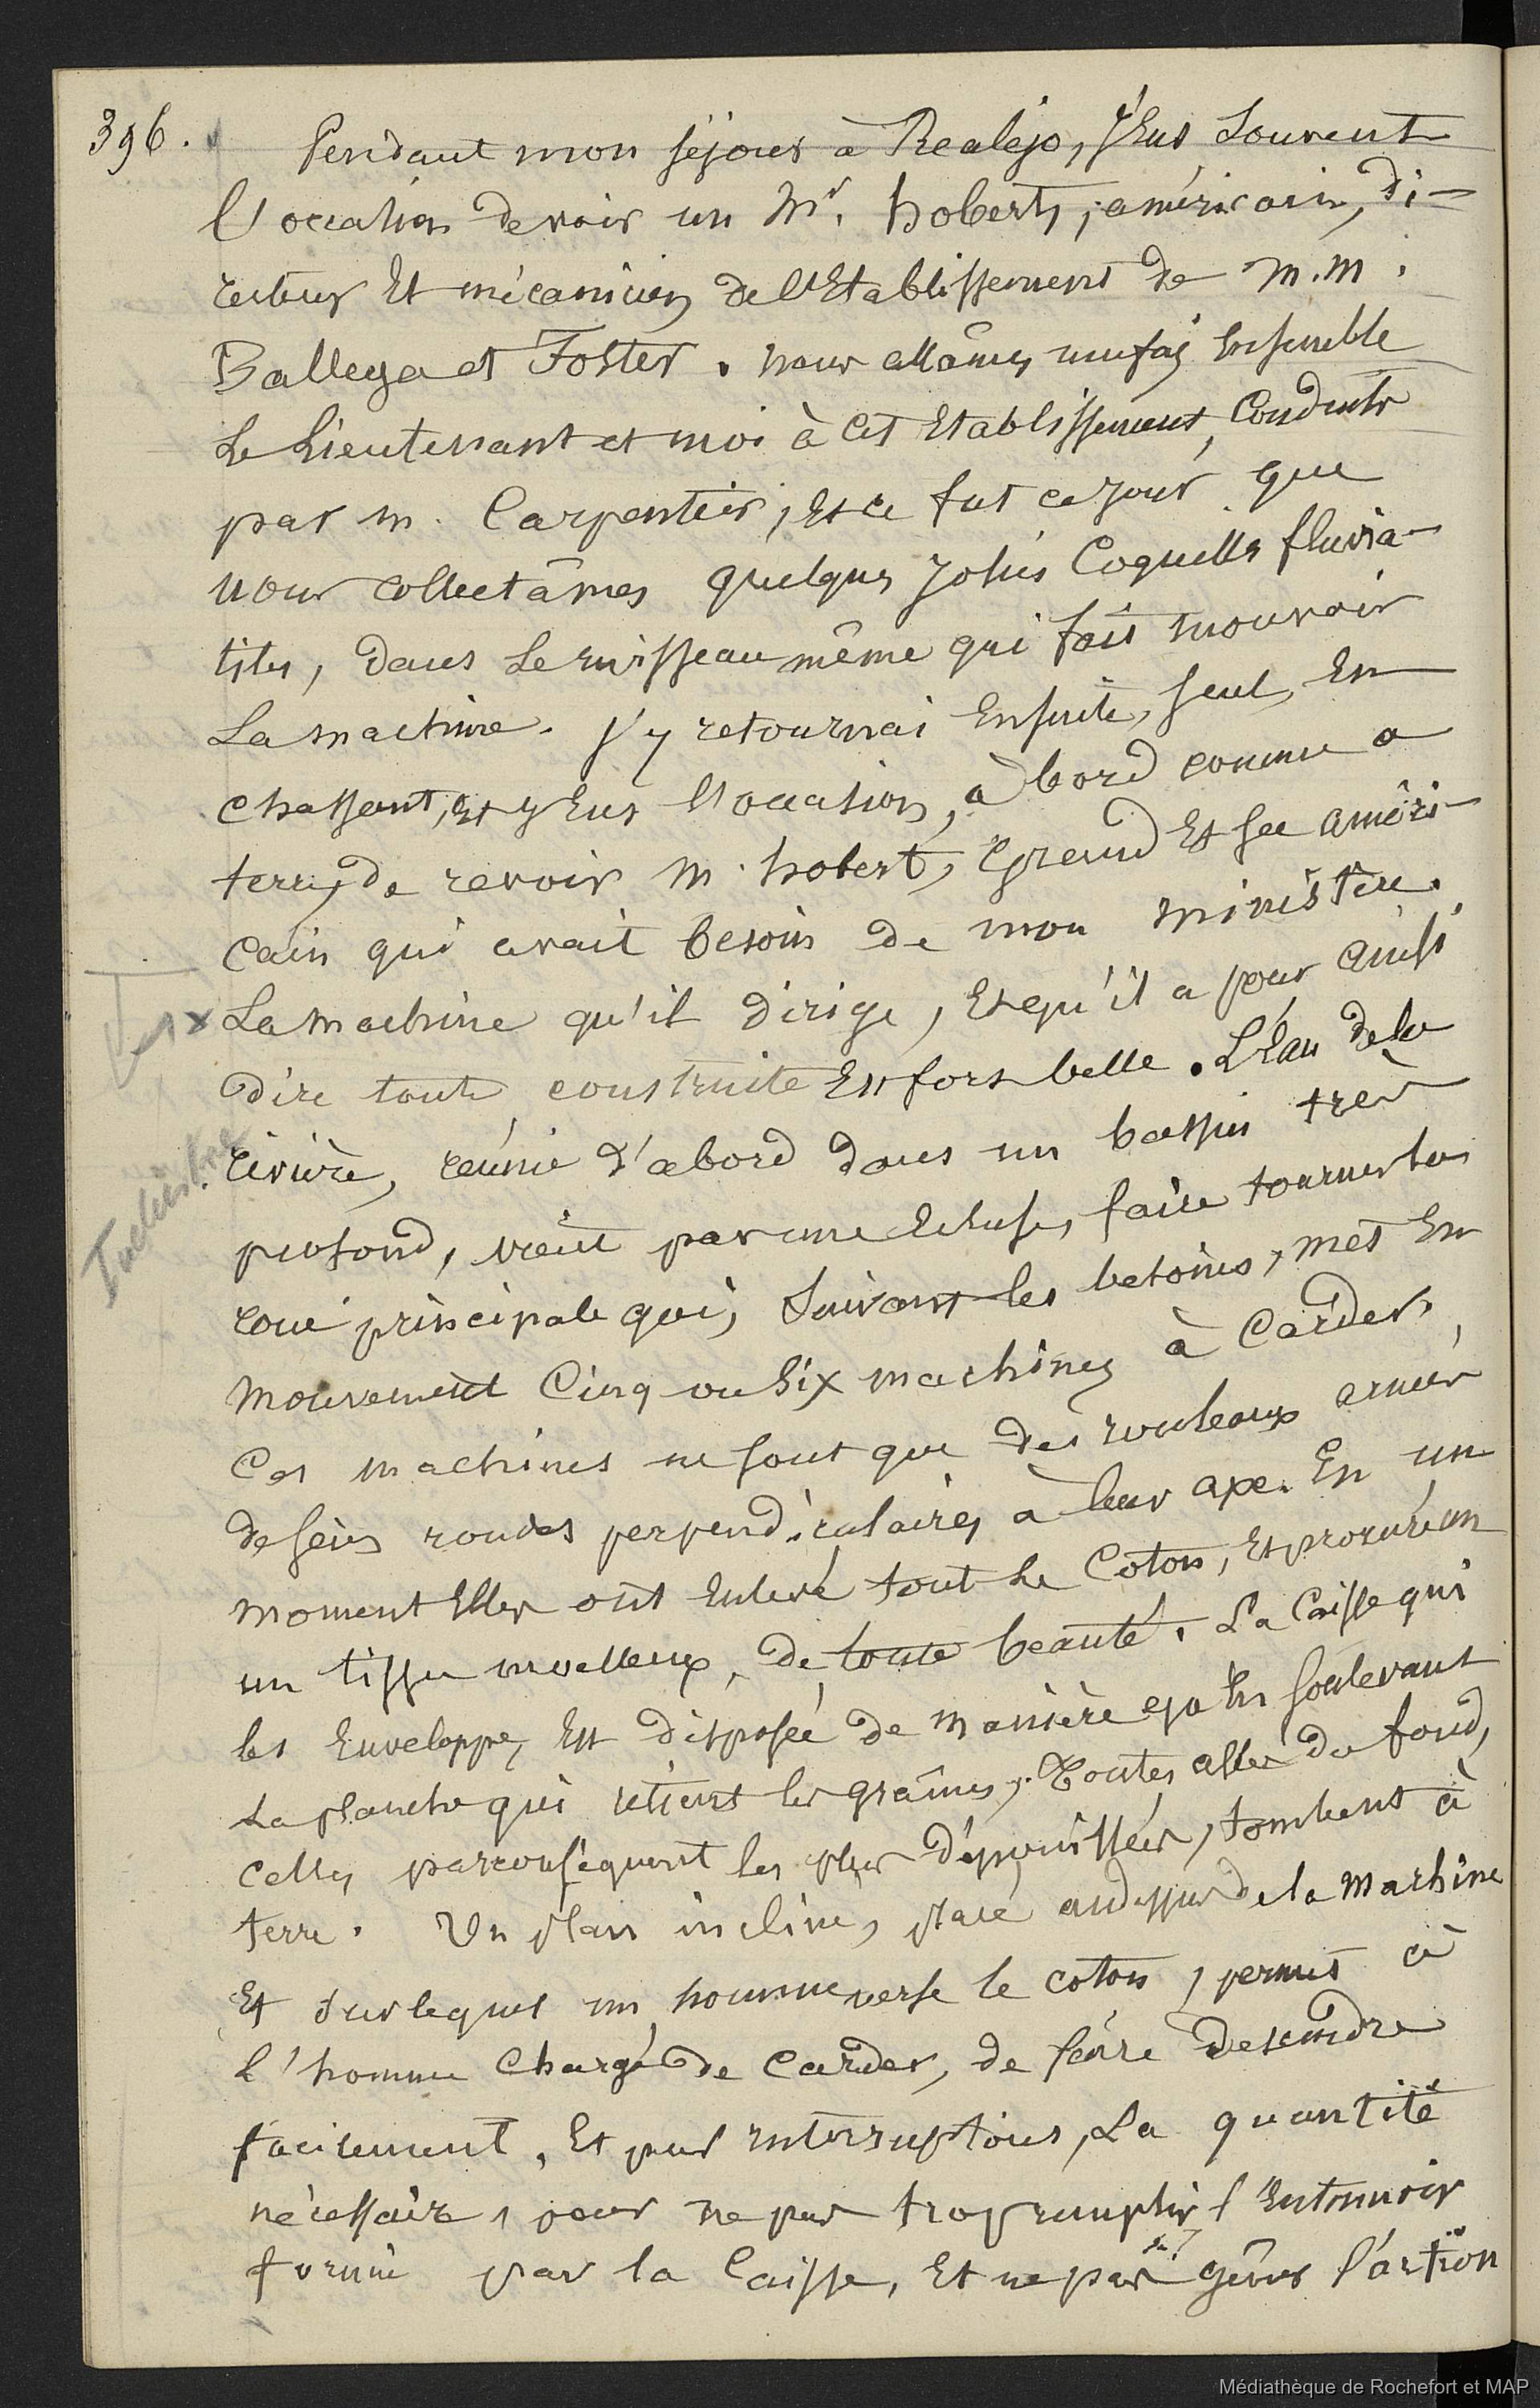 396.
Pendant mon séjour à Realejo, j'Eus Souvent
l'occasion de voir un Mr. hobert, américain, di-
recteur Et mécanicien de l'Etablissement de M.M.
Ballega et Foster. nous allâmes une fois Ensemble
Le Lieutenant et moi à Cet Etablissement, Conduits
par m. Carpentier, Et ce fut ce jour que
nous collectâmes quelques Jolies Coquilles fluvia-
tiles, dans Le ruisseau même qui fait mouvoir
La machine. J'y retournai Ensuite, seul, En
chassant, et j'Eus l'occasion, à bord comme a
terre, de revoir M. hobert, Grand Et sec améri-
cain qui avait besoin de mon ministère.
La machine qu'il dirige, Et qu'il a pour ainsi
dire toute construite Est fort belle. L'Eau de la
rivière, réunie d'abord dans un bassin très
profond, vient par une Ecluse, faire tourner la
roue principale qui, Suivant les besoins, met En
mouvement Cinq ou Six machines à Carder.
Ces machines ne sont que des rouleaux armés
de scies rondes perpendiculaires à leur axe. En un
moment Elles ont Enlevé tout Le Coton, Et procuré un
un tissu moelleux, de toute beauté. La Caisse qui
les Enveloppe, Est disposée de manière qu'En soulevant
La planche qui retient les graines, Toutes celles du fond,
celles par conséquent les plus dépouillées, tombent à
terre. Un plan incliné, placé au dessus de la Machine
Et Sur lequel un homme verse le coton, permet à
L'homme Chargé de Carder, de faire descendre
facilement, Et sans interruptions, La quantité
nécessaire, pour ne pas trop remplir l'Entonnoir
formé par la Caisse, Et ne pas gêner l'action
Industrie